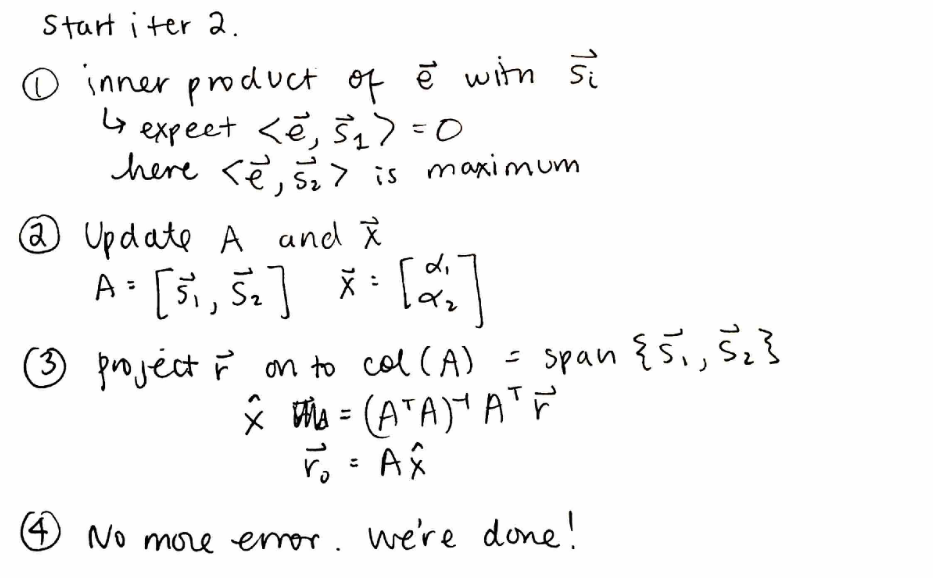 Start iter 2.
① inner product of e⃗ with s⃗ᵢ
↳ expect <e⃗, s⃗₁> = 0
here <e⃗, s⃗₂> is maximum
② Update A and x⃗
A = [s⃗₁, s⃗₂] x⃗ = [α₁ α₂]
③ project r⃗ on to col(A) = span {s⃗₁, s⃗₂}
x̂ = (AᵀA)⁻¹ Aᵀ r⃗
r⃗₀ = Ax̂
④ No more error. We're done!